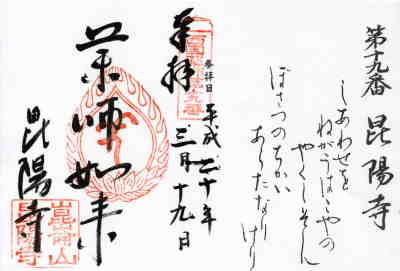 第十九番 昆陽寺
しあわせを
ねがうほいやの
やくしそん
ぼさつのちかい
あらたなり
けり
奉拝
参拝日
平成二十年
三月十九日
薬師如来
昆陽寺
崑崙山
昆陽寺